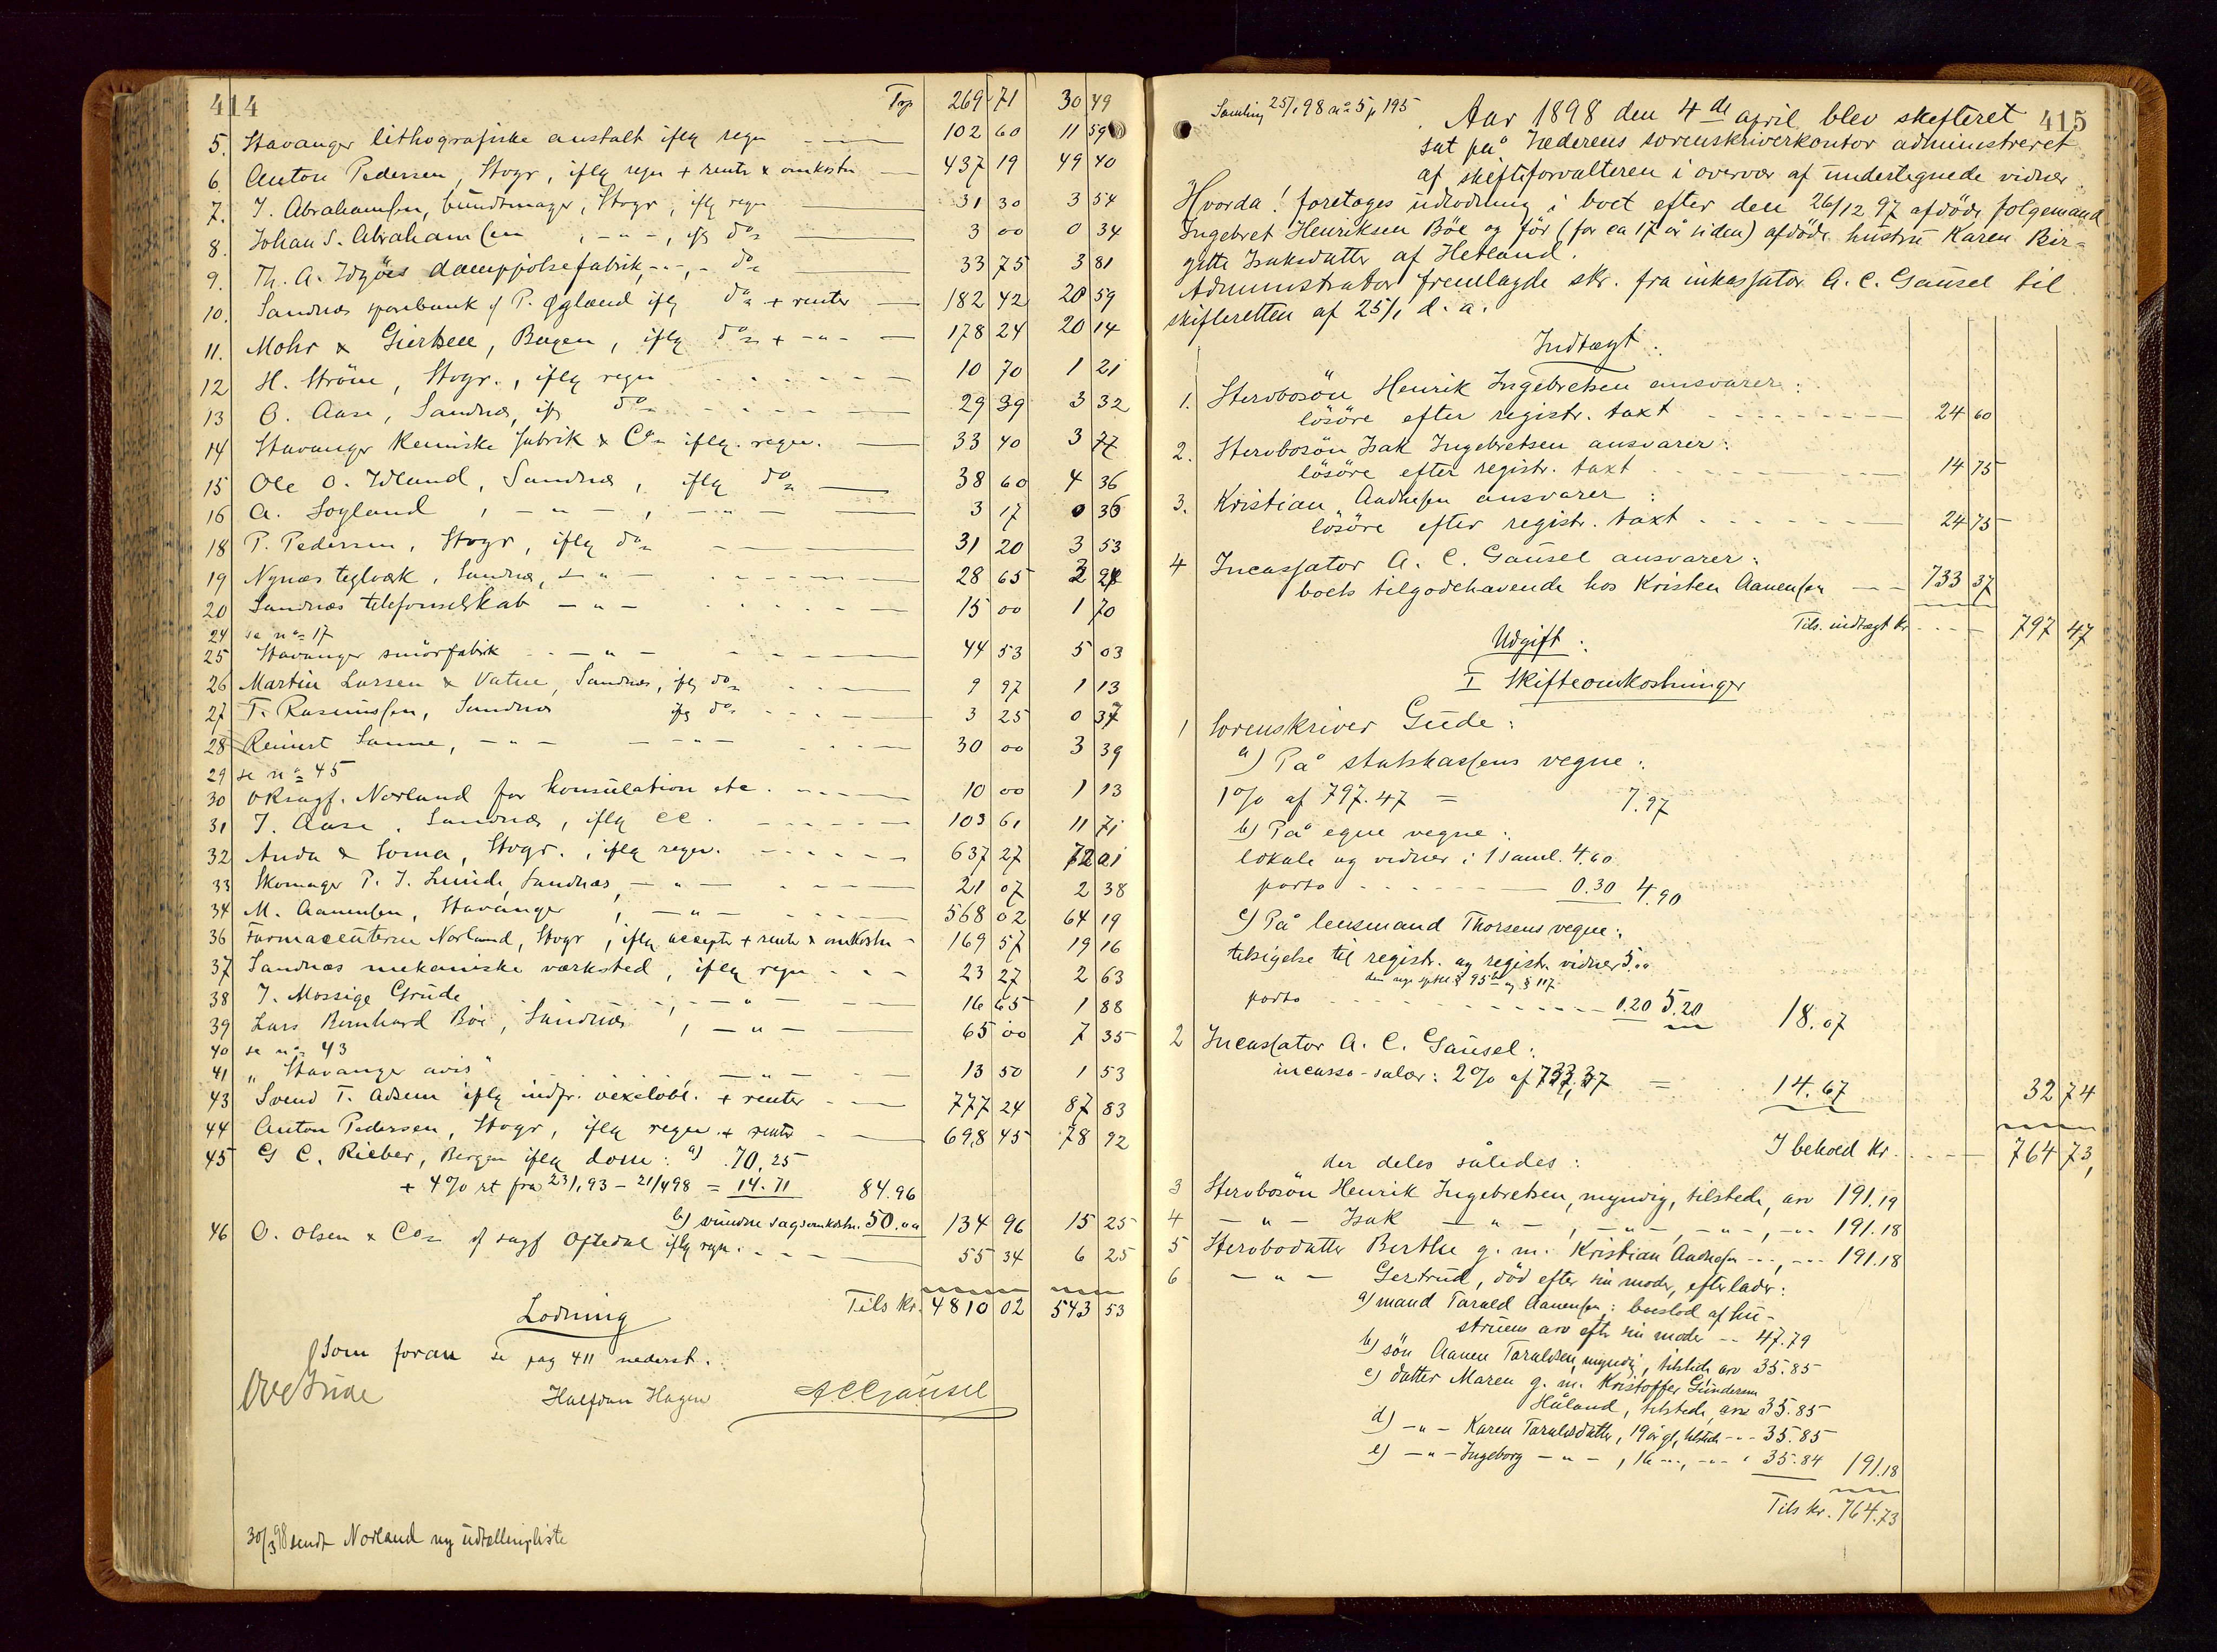 414
Trp 269 71 30 49
5. Stavanger lithografiske anstalt iflg regn 102 60 11 59
6. Anton Pedersen, Stvgr, iflg regn + rente & omkostn 437 19 49 40
7. J. Abrahamsen, bundtmager, Stvgr, iflg regn 31 30 3 54
8. Johan S. Abrahamsen , -"-, iflg do 3 00 0 34
9. Th. A. Idsöes dampjolsefabrik, -"-, - do 33 75 3 81
10. Sandnæs sparebank f P. Øglænd iflg do + renter 182 42 20 59
11. Mohr & Giertsen, Bergen, iflg do + -"- 178 24 20 14
12 H. Ström, Stvgr., iflg regn 10 70 1 21
13 O. Aase, Sandnæs, iflg do 29 39 3 32
14 Stavanger kemiske fabrik & Co iflg. regn. 33 40 3 77
15 Ole O. Idland, Sandnæs, iflg do 38 60 4 36
16 A. Soyland , -"-, -"- 3 17 0 36
18 P. Pedersen, Stvgr, iflg do 31 20 3 53
19 Nynæs teglværk, Sandnæs, -"- 28 65 3 24
20 Sandnæs telefonselskab -"- 15 00 1 70
24 se no 17
25 Stavanger smörfabrik -"- 44 53 5 03
26 Martin Larsen & Vatne, Sandnæs, iflg do 9 97 1 13
27 T. Rasmussen, Sandnæs iflg do 3 25 0 37
28 Reinert Sanne, -"- -"- 30 00 3 39
29 se no 45
30 Oksagf. Norland for konsulation etc. 10 00 1 13
31 J. Aase, Sandnæs, iflg cc. 103 61 11 71
32 Anda & Soma, Stvgr., iflg regn. 637 27 72 01
33 Skomager P. J. Lunde, Sandnæs, -"- 21 07 2 38
34 M. Aanensen, Stavanger , -"- 568 02 64 19
36 Farmaceuterne Norland, Stvgr, iflg accepter + rente & omkostn 169 57 19 16
37 Sandnæs mekaniske værksted, iflg regn 23 27 2 63
38 J. Mossige Grude , -"- 16 65 1 88
39 Lars Bernhard Böe, Sandnæs , -"- 65 00 7 35
40 se no 43
41 "Stavanger avis" -"- 13 50 1 53
43 Svend T. Adsem iflg indfr. vexelobl. + renter 777 24 87 83
44 Anton Pedersen, Stvgr, iflg regn. + rente 698 45 78 92
45 G C. Rieber, Bergen iflg dom: a) 70,25
+ 4% rt fra 23/1 93 - 21/4 98 = 14.71 84.96
b) vundne sagsomkostn. 50.00 134 96 15 25
46 O. Olsen & Co f sagf Oftedal iflg regn. 55 34 6 25
Tils kr. 4810 02 543 53
Lodning
Som foran se pag 411 nederst.
Ove Gude Halfdan Hagen A C Gausel
30/3 98 sendt Norland ny udtællingsliste
415
Samling 25/1 98 no 5 p 195
Aar 1898 den 4de april blev skifteret
sat på Jæderens sorenskriverkontor administreret
af skifteforvalteren i overvær af undertegnede vidner
Hvorda! foretages udlodning i boet efter den 26/12 97 afdöde folgemand
Ingebret Henriksen Böe og för (for ca 17 år siden) afdöde hustru Karen Bir-
gitte Isaksdatter af Hetland.
Administrator fremlagde skr. fra inkassator A. C. Gausel til
skifteretten af 25/1 d. a.
Indtægt:
1. Stervbosön Henrik Ingebretsen ansvarer:
lösöre efter registr. taxt 24 60
2. Stervbosön Isak Ingebretsen ansvarer:
lösöre efter registr. taxt 14 75
3. Kristian Andreasen ansvarer:
lösöre efter registr. taxt 24 75
4 Incassator A. C. Gausel ansvarer:
boets tilgodehavende hos Kristen Aanensen 733 37
Tils. indtægt kr 797 47
Udgift:
I Skifteomkostninger
1 Sorenskriver Gude:
a) På statskassens vegne:
1% af 797.47 = 7.97
b) På egne vegne:
lokale og vidner i 1 saml. 4.60
porto 0.30 4.90
c) På lensmand Thorsens vegne:
tilsigelse til registr. og registr. vidner 5.00
porto 0.20 5.20 18.07
2 Incassator A. C. Gausel:
incasso-salær: 2% af 733,37 = 14.67 32 74
I behold kr. 764 73,
der deles således:
3 Stervbosön Henrik Ingebretsen, myndig, tilstede, arv 191.19
4 -"- Isak -"-, -"-, -"-, -"- 191.18
5 Stervbodatter Berthe g. m. Kristian Andreasen -"-, -"- 191.18
6 -"- Gertrud, död efter sin moder, efterlader:
a) mand Tarald Aanensen: boeslod af hu-
struens arv efter sin moder -- 47.79
b) sön Aanen Taraldsen, myndig, tilstede arv 35.85
c) datter Maren g. m. Kristoffer Gundersen
Håland, tilstede, arv 35.85
d) -"- Karen Taraldsdatter, 19 år gl, tilstede -"- 35.85
e) -"- Ingeborg -"-, 16 -"-, -"- 35.84 191.18
Tils kr. 764.73